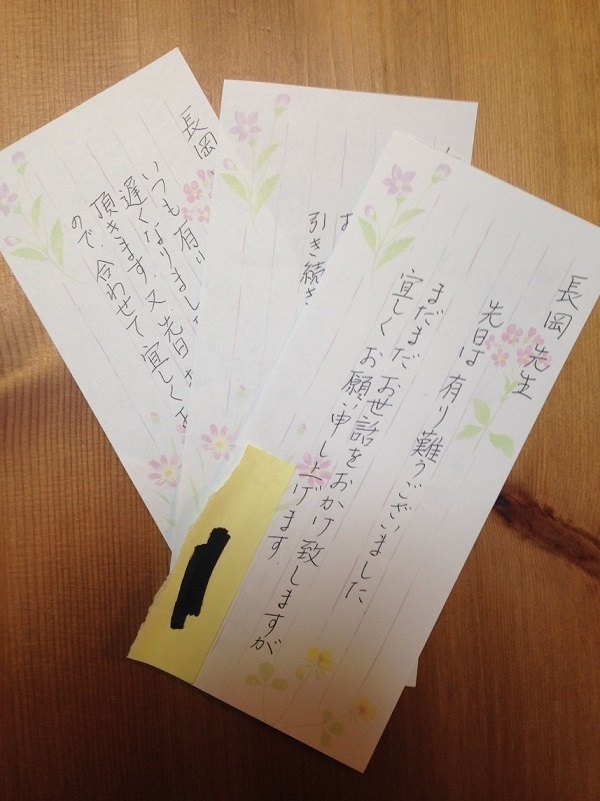 長岡 先生
先日は 有り難うございました
まだまだ お世話をおかけ致しますが
宜しく お願い申し上げます.
引き続き
長岡
いつも有り
遅くなりまし
頂きます. 又 先日
ので 合わせて 宜しく